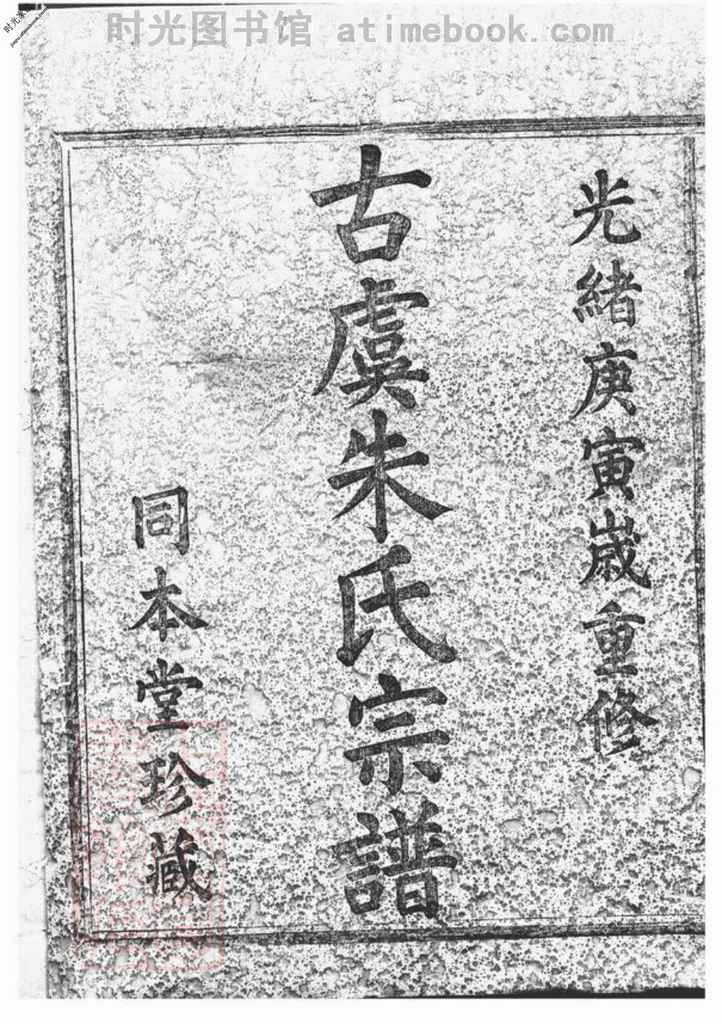 时光图书馆 atimebook.com
光緒庚寅歲重修
古虞朱氏宗譜
同本堂珍藏